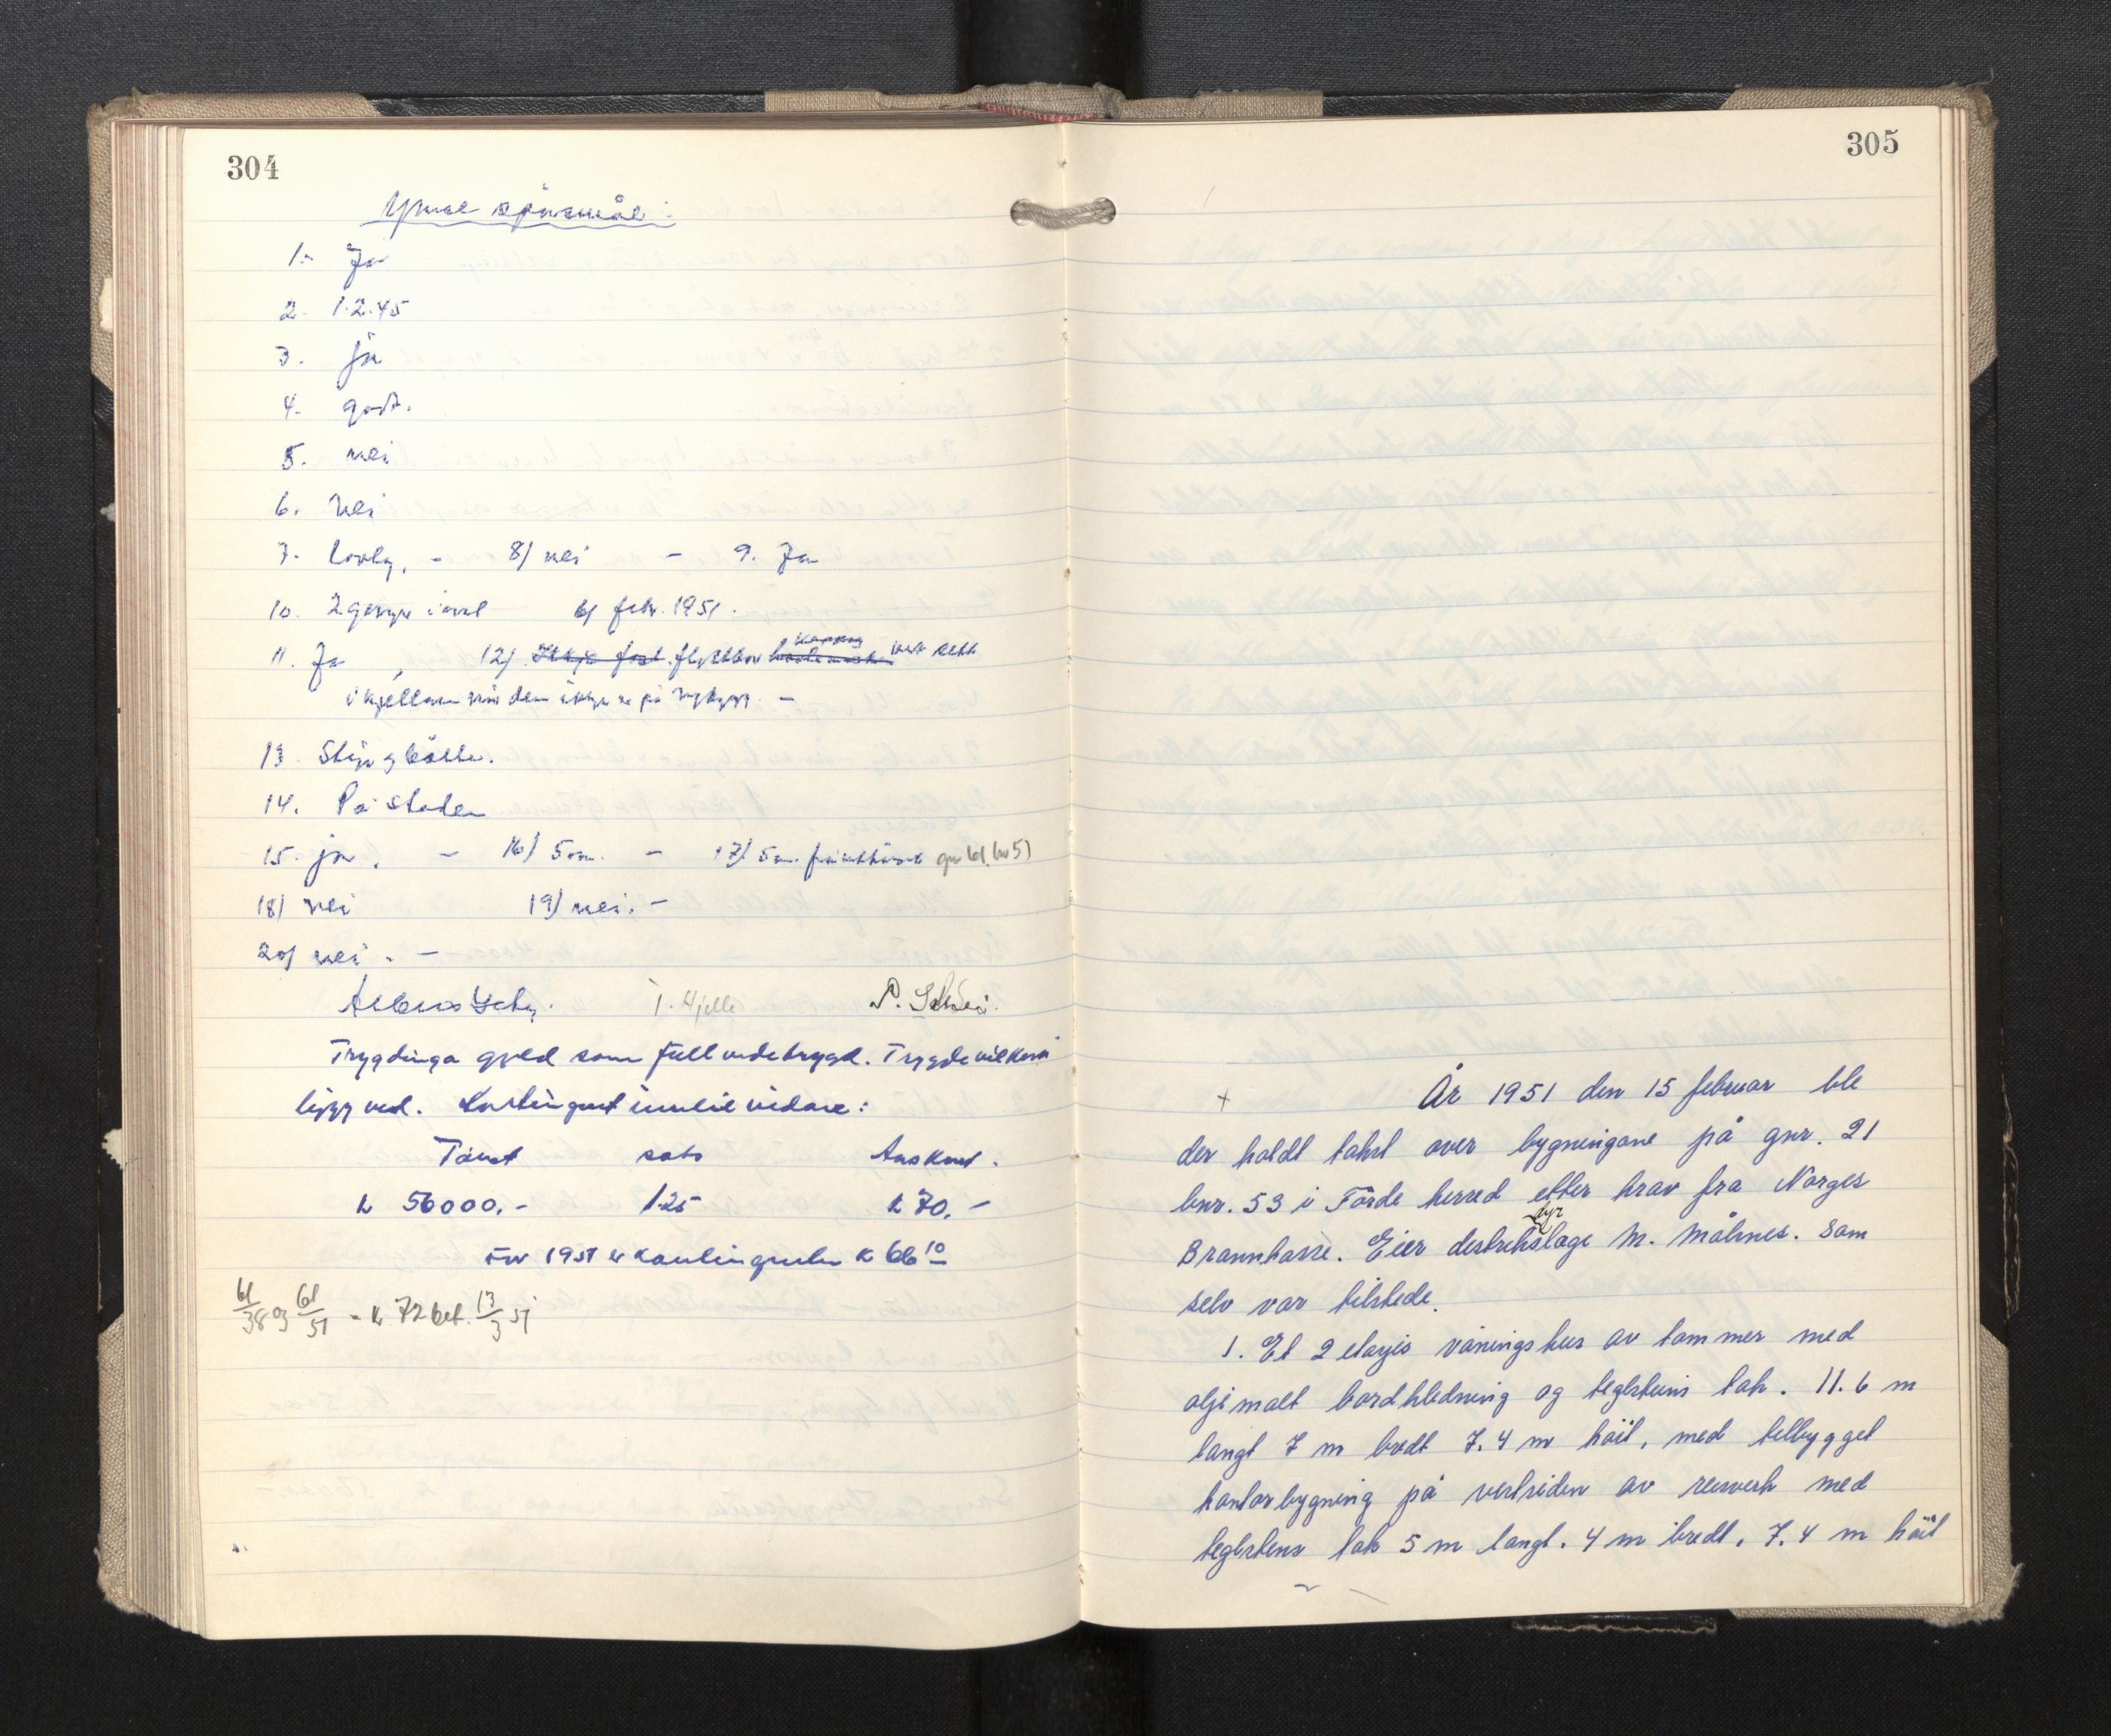 304
Ymse spörsmål:
1. Ja
2. 1.2.45
3. ja
4. godt.
5. nei
6. Nei
7. Lovleg, - 8/ nei - 9. Ja
10. 2 gonger i året 6/ febr. 1951.
11. Ja, 12/
i kjellaren når den
13. Stige og bötte.
14. På staden
15. ja. - 16/ 5 m. - 17/ 5 m. frå uthuset gnr 61, bnr 51
18/ nei 19/ nei. -
20/ nei. -
T. Hjelle
Trygdinga gjeld som full verdetrygd. Trygdevilkåra
ligg ved. Kontingent innlil vidare:
Takst sats Årskont.
kr 56000,- 1.25 kr 70.-
For 1951 er kontingenten kr 66 10
61/38 og 61/51 - kr 72 bet. 13/3 51
305
+ År 1951 den 15 februar ble
der holdt takst over bygningane på gnr. 21
bnr. 53 i Förde herred etter krav fra Norges
dyr
Brannkasse. Eier destriktslæge M. Målsnes. som
selv var tilstede.
1. Et 2 etagis våningshus av tømmer med
oljemalt bordkledning og teglsteins tak. 11.6 m
langt 7 m bredt 7.4 m höit, med tilbygget
kontorbygning på vestsiden av reisverk med
teglstens tak 5 m langt. 4 m bredt, 7.4 m höit